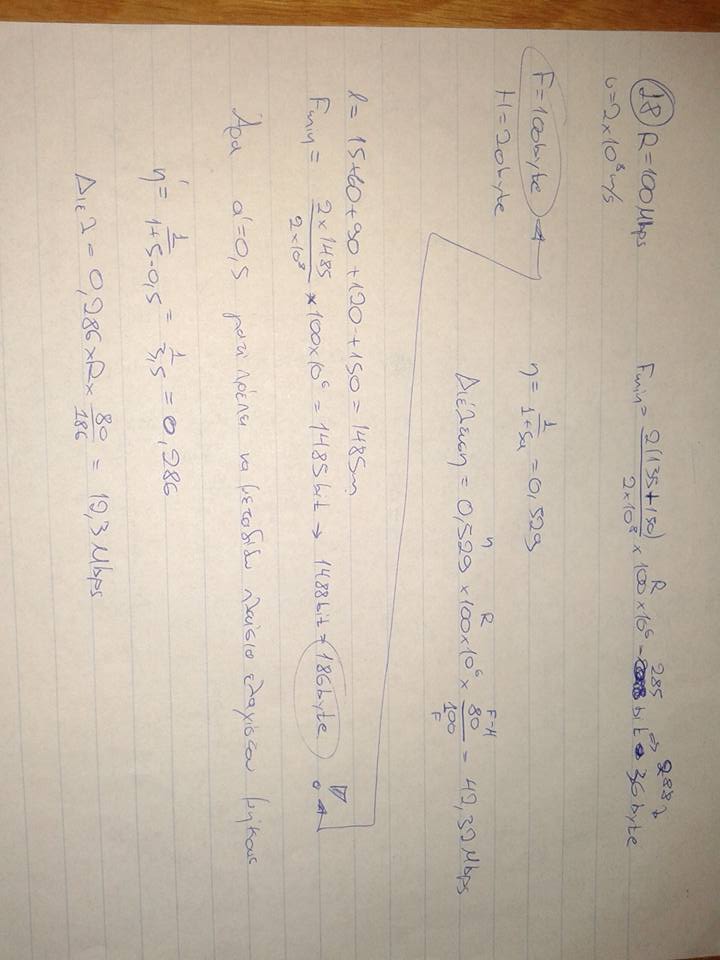 18 R = 100Mbps
υ = 2×10⁸ m/s
Fmin = 2(135+150) / 2×10⁸ × 100×10⁶ = 285 bit ⇒ 288 ⇒ 36byte
R
F = 100byte
H = 20byte
η = 1 / 1+5a = 0,529
η R F-H
Διέλευση = 0,529 × 100×10⁶ × 80 / 100 = 42,32Mbps
F
l = 15+60+90+120+150 = 1485m
Fmin = 2×1485 / 2×10⁸ × 100×10⁶ = 1485bit → 1488bit → 186byte
Άρα a' = 0,5 γιατί πρέπει να μεταδίδει πλαίσιο ελαχίστου μήκους
η' = 1 / 1+5·0,5 = 1 / 3,5 = 0,286
Διελ = 0,286 × R × 80 / 186 = 12,3 Mbps